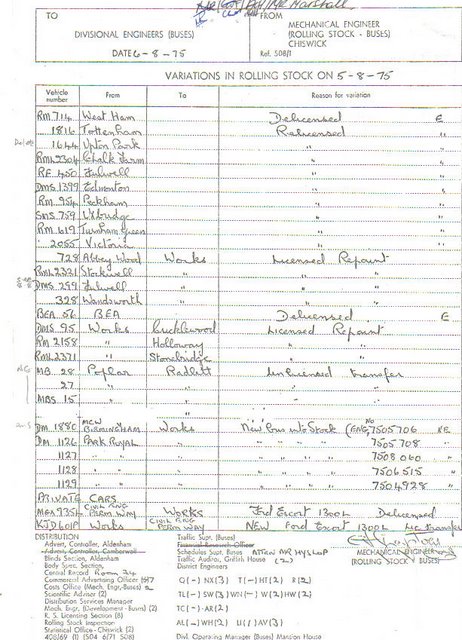 TO
DIVISIONAL ENGINEERS (BUSES)
DATE 6-8-75
FROM
MECHANICAL ENGINEER
(ROLLING STOCK - BUSES)
CHISWICK
Ref. 508/1
VARIATIONS IN ROLLING STOCK ON 5-8-75
Vehicle number From To Reason for variation
RM 714 West Ham Delicensed E
1816 Tottenham Relicensed "
1644 Upton Park " "
RML 2304 Chalk Farm " "
RF 450 Fulwell " "
DMS 1399 Edmonton " "
RM 954 Peckham " "
SMS 759 Uxbridge " "
RM 619 Turnham Green " "
" 2055 Victoria " "
728 Abbey Wood Works Licensed Repaint
RML 2321 Stockwell " " "
DMS 299 Fulwell " " "
328 Wandsworth " " "
BEA 56 BEA Delicensed E
DMS 95 Works Cricklewood Licensed Repaint
RM 2158 " Holloway " "
RML 2371 " Stonebridge " "
MB 28 Poplar Radlett Unlicensed transfer
27 " " " "
MBS 15 " " " "
DM 1880 MCW BIRMINGHAM Works New Bus into Stock (ENG. No 7505706
DM 1126 PARK ROYAL " " " " " 7505708 "
1127 " " " " " " " 7508060 "
1128 " " " " " " " 7506515 "
1129 " " " " " " " 7504928 "
PRIVATE CARS
CIVIL ENG PERM WAY WORKS Ford Escort 1300L Delicensed
KJD 601P Works CIVIL ENG PERM WAY NEW Ford Escort 1300L Lic transfer
DISTRIBUTION
Advert. Controller, Aldenham
Advert. Controller, Camberwell
Blinds Section, Aldenham
Body Spec. Section,
Central Record Room 24
Commercial Advertising Officer (5)7
Costs Office (Mech. Engr.-Buses) 2
Scientific Adviser (2)
Distribution Services Manager
Mech. Engr. (Development - Buses) (2)
R. S. Licensing Section (8)
Rolling Stock Inspection
Statistical Office - Chiswick (2)
Traffic Supt. (Buses)
Financial Research Officer
Schedules Supt. Buses ATTEN MR HYSLOP
Traffic Audits, Griffith House (2)
District Engineers
Q(-) NX(3) T(-) HT(2) R(2)
TL(-) SW(3) WN(-) W(2) HW(2)
TC(-) AR(2)
AL(-) WH(2) U(1) AV(3)
Divl. Operating Manager (Buses) Mansion House
MECHANICAL ENGINEER
(ROLLING STOCK - BUSES)